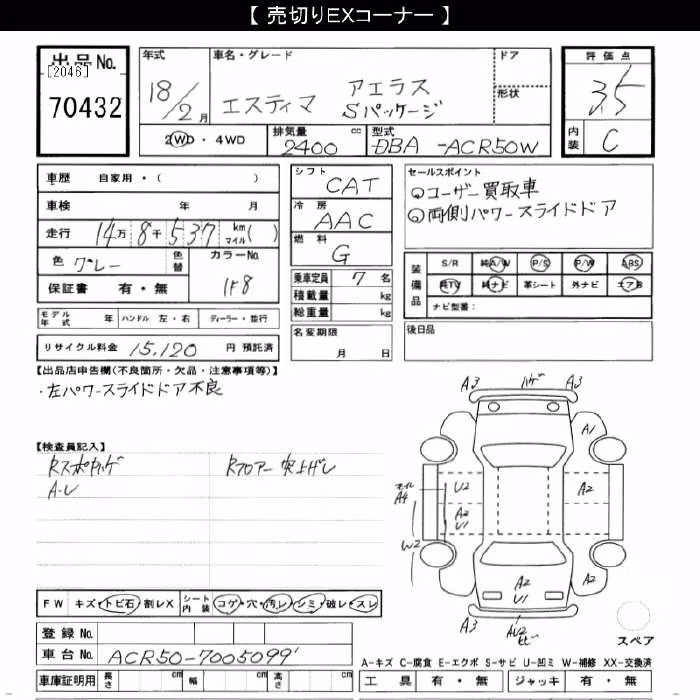 【 売切りEXコーナー 】
出品No.
[2046]
70432
年式
18/2月
車名・グレード
エスティマ アエラス Sパッケージ
ドア
形状
評価点
3.5
内装
C
2WD・4WD
排気量
2400 cc
型式
DBA -ACR50W
車歴 自家用・( )
車検 年 月
走行 14万8千537 km マイル( )
色 グレー
色替
カラーNo.
1F8
保証書 有・無
シフト
CAT
冷房
AAC
燃料
G
乗車定員 7 名
積載量 kg
総重量 kg
名変期限
月 日
セールスポイント
◎ユーザー買取車
◎両側パワースライドドア
装備品
S/R 純A/W P/S P/W ABS
純TV 純ナビ 革シート 外ナビ エアB
ナビ型番:
後日品
モデル年式 年 ハンドル 左・右 ディーラー・並行
リサイクル料金 15,120 円 預託済
【出品店申告欄(不良箇所・欠品・注意事項等)】
・左パワースライドドア不良
【検査員記入】
Rフロアー 突上げ
A3 ハゲ A3
A1
U2
A2
モール
A4
A2
U1
W2
A2
A2
U1
A3
スペア
FW キズ・トビ石・割レX シート内装 コゲ・穴・汚レ・シミ・破レ・スレ
登録No.
車台No. ACR50-7005099
車庫証明用 長さ cm 幅 cm 高さ cm
A-キズ C-腐食 E-エクボ S-サビ U-凹ミ W-補修 XX-交換済
工具 有・無 ジャッキ 有・無